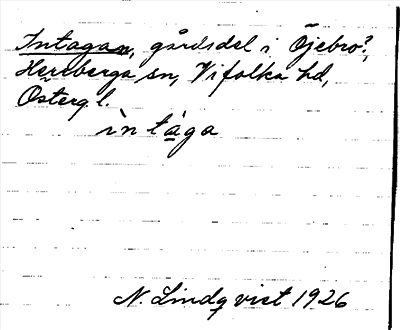 Intagan, gårdsdel i Öjebro?,
Herrberga sn, Vifolka hd,
Österg l.
ìn tàga
N. Lindqvist 1926